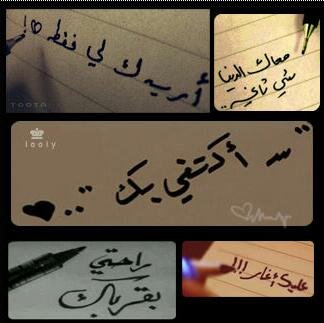 أريدك لي فقط !
TOOTA
معاك الدنيا
شي ثاني ..
looly
" أكتفي بك .. "
راحتي
بقربك
عليك أغار !!!